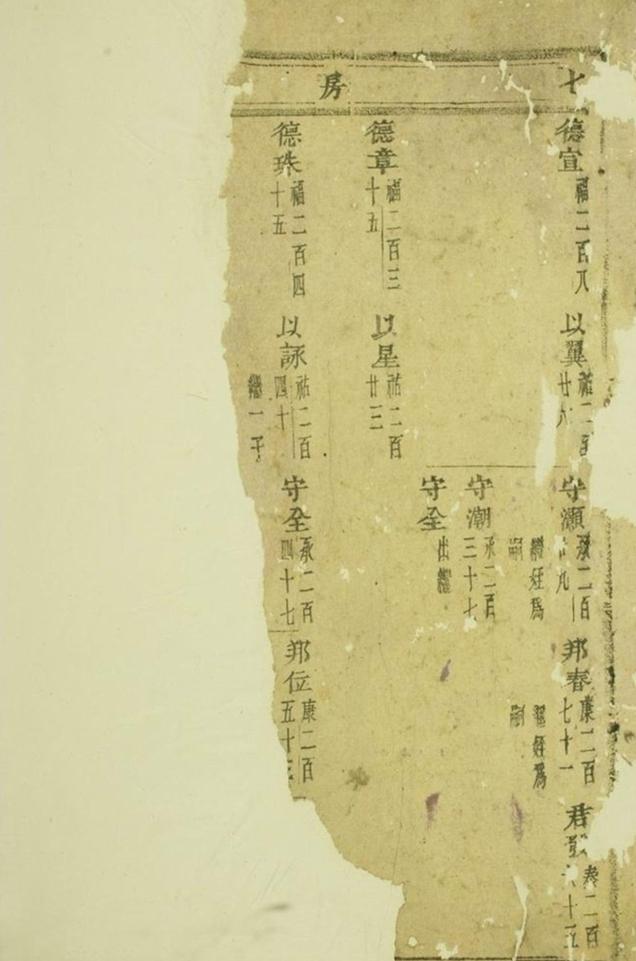 七房
德宣 福二百八
以翼 祐二百廿六
守瀬 承二百
繼姪爲嗣
邦春 康二百七十一
繼姪爲嗣
君 泰二百十五
守潮 承二百三十七
守全 出繼
德章 福二百三十五
以星 祐二百廿三
德珠 福二百四十五
以詠 祐二百四十
繼一子
守全 承二百四十七
邦位 康二百五十三